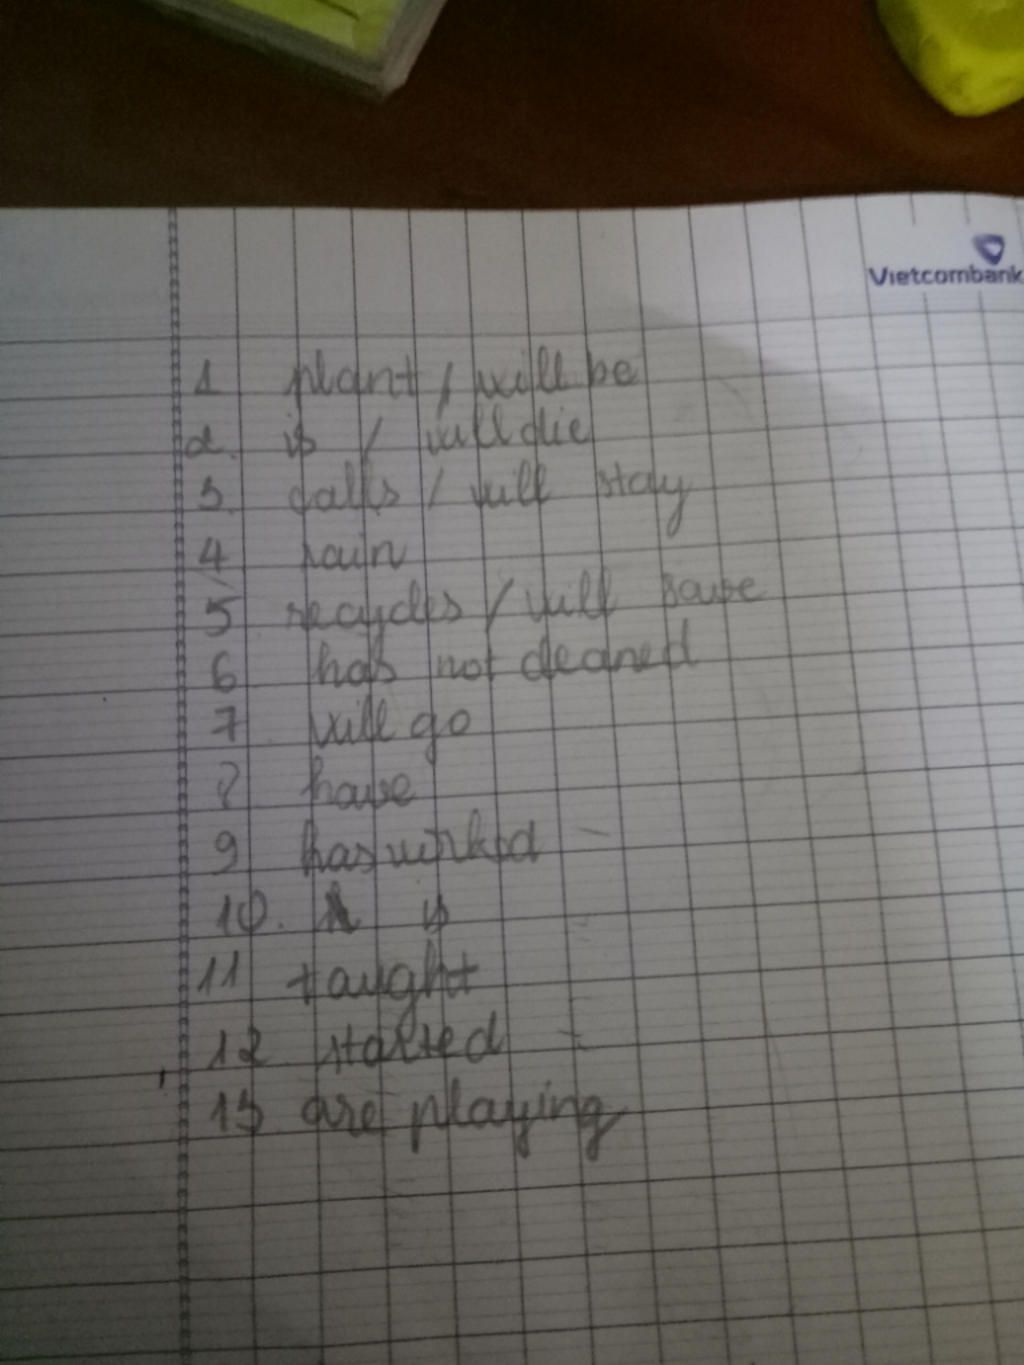 Vietcombank
1 plant / will be
2. is / will die
3. falls / will stay
4 rain
5 recycles / will save
6 has not cleaned
7 will go
8 have
9 has worked
10. is
11 taught
12 started
13 are playing